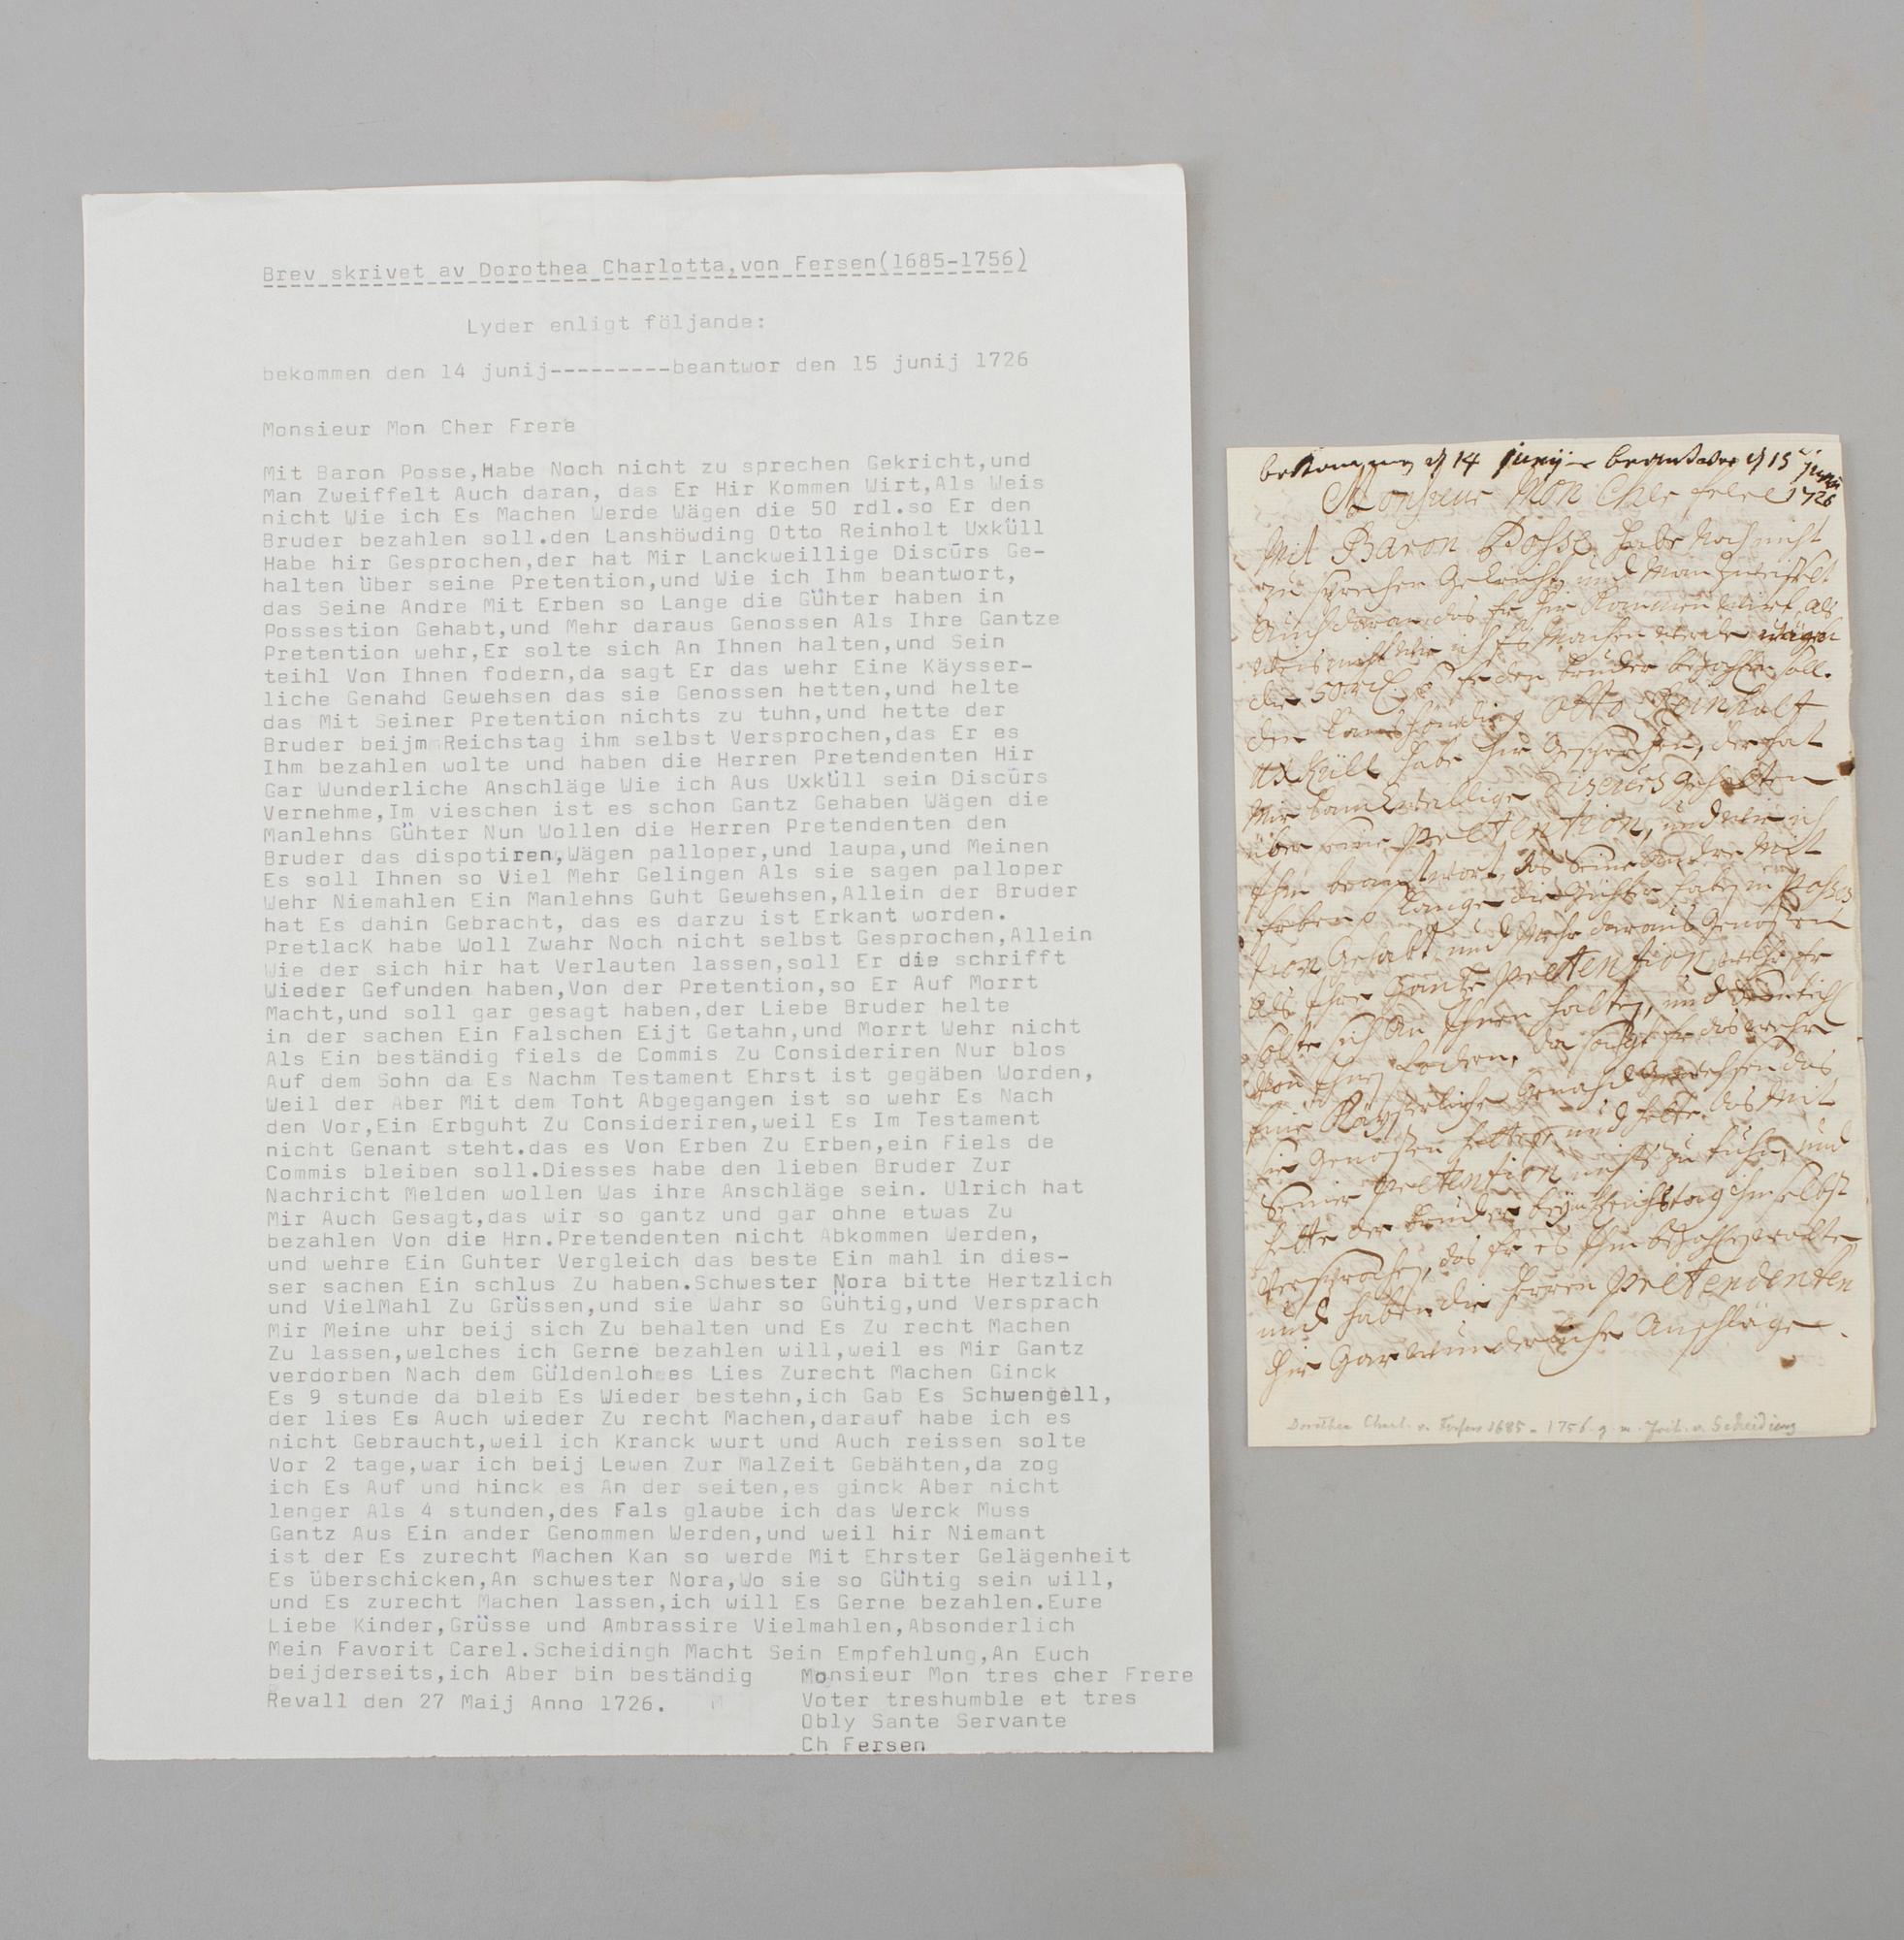 Brev skrivet av Dorothea Charlotta,von Fersen(1685-1756)
Lyder enligt följande:
bekommen den 14 junij---------beantwor den 15 junij 1726
Monsieur Mon Cher Frere
Mit Baron Posse,Habe Noch nicht zu sprechen Gekricht,und
Man Zweiffelt Auch daran, das Er Hir Kommen Wirt,Als Weis
nicht Wie ich Es Machen Werde Wägen die 50 rdl.so Er den
Bruder bezahlen soll.den Lanshöwding Otto Reinholt Uxküll
Habe hir Gesprochen,der hat Mir Lanckweillige Discürs Ge-
halten über seine Pretention,und Wie ich Ihm beantwort,
das Seine Andre Mit Erben so Lange die Gühter haben in
Possestion Gehabt,und Mehr daraus Genossen Als Ihre Gantze
Pretention wehr,Er solte sich An Ihnen halten,und Sein
teihl Von Ihnen fodern,da sagt Er das wehr Eine Käysser-
liche Genahd Gewehsen das sie Genossen hetten,und helte
das Mit Seiner Pretention nichts zu tuhn,und hette der
Bruder beijm Reichstag ihm selbst Versprochen,das Er es
Ihm bezahlen wolte und haben die Herren Pretendenten Hir
Gar Wunderliche Anschläge Wie ich Aus Uxküll sein Discürs
Vernehme,Im vieschen ist es schon Gantz Gehaben Wägen die
Manlehns Gühter Nun Wollen die Herren Pretendenten den
Bruder das dispotiren,Wägen palloper,und laupa,und Meinen
Es soll Ihnen so Viel Mehr Gelingen Als sie sagen palloper
Wehr Niemahlen Ein Manlehns Guht Gewehsen,Allein der Bruder
hat Es dahin Gebracht, das es darzu ist Erkant worden.
PretlacK habe Woll Zwahr Noch nicht selbst Gesprochen,Allein
Wie der sich hir hat Verlauten lassen,soll Er die schrifft
Wieder Gefunden haben,Von der Pretention,so Er Auf Morrt
Macht,und soll gar gesagt haben,der Liebe Bruder helte
in der sachen Ein Falschen Eijt Getahn,und Morrt Wehr nicht
Als Ein beständig fiels de Commis Zu Consideriren Nur blos
Auf dem Sohn da Es Nachm Testament Ehrst ist gegäben Worden,
Weil der Aber Mit dem Toht Abgegangen ist so wehr Es Nach
den Vor,Ein Erbguht Zu Consideriren,weil Es Im Testament
nicht Genant steht.das es Von Erben Zu Erben,ein Fiels de
Commis bleiben soll.Diesses habe den lieben Bruder Zur
Nachricht Melden wollen Was ihre Anschläge sein. Ulrich hat
Mir Auch Gesagt,das wir so gantz und gar ohne etwas Zu
bezahlen Von die Hrn.Pretendenten nicht Abkommen Werden,
und wehre Ein Guhter Vergleich das beste Ein mahl in dies-
ser sachen Ein schlus Zu haben.Schwester Nora bitte Hertzlich
und VielMahl Zu Grüssen,und sie Wahr so Gühtig,und Versprach
Mir Meine uhr beij sich Zu behalten und Es Zu recht Machen
Zu lassen,welches ich Gerne bezahlen will,weil es Mir Gantz
verdorben Nach dem Güldenloh es Lies Zurecht Machen Ginck
Es 9 stunde da bleib Es Wieder bestehn,ich Gab Es Schwengell,
der lies Es Auch wieder Zu recht Machen,darauf habe ich es
nicht Gebraucht,weil ich Kranck wurt und Auch reissen solte
Vor 2 tage,war ich beij Lewen Zur MalZeit Gebähten,da zog
ich Es Auf und hinck es An der seiten,es ginck Aber nicht
lenger Als 4 stunden,des Fals glaube ich das Werck Muss
Gantz Aus Ein ander Genommen Werden,und weil hir Niemant
ist der Es zurecht Machen Kan so werde Mit Ehrster Gelägenheit
Es überschicken,An schwester Nora,Wo sie so Gühtig sein will,
und Es zurecht Machen lassen,ich will Es Gerne bezahlen.Eure
Liebe Kinder,Grüsse und Ambrassire Vielmahlen,Absonderlich
Mein Favorit Carel.Scheidingh Macht Sein Empfehlung,An Euch
beijderseits,ich Aber bin beständig Monsieur Mon tres cher Frere
Revall den 27 Maij Anno 1726. Voter treshumble et tres
Obly Sante Servante
Ch Fersen
bekommen d 14 junij beantwor d 15 junij
Monsieur Mon Cher frere 1726
Mit Baron Posse, habe Noch nicht
zu sprechen Gekricht, und Man Zweiffelt
Auch daran, das Er hir Kommen wirt, als
weis nicht wie ich Es Machen werde wägen
die 50 rdl. so Er den bruder bezahlen soll.
den Lanshöwding Otto Reinholt
Uxküll habe hir Gesprochen, der hat
Mir Lanckweillige Discürs Gehalten
über seine Pretention, und wie ich
Ihm beantwort, das Seine andre Mit
Erben so Lange die Gühter haben in Posses
tion Gehabt, und Mehr daraus Genossen
Als Ihre Gantze pretention wehr, Er
solte sich An Ihnen halten, und Sein teihl
Von Ihnen fodern, da sagt Er das wehr
Eine Käysserliche Genahd Gewehsen das
sie Genossen hetten, und helte das Mit
Seiner pretention nichts zu tuhn, und
hette der bruder beijm Reichstag ihm selbst
Versprochen, das Er es Ihm bezahlen wolte
und haben die Herren pretendenten
hir Gar wunderliche Anschläge
Dorothea Charl. v. Fersen 1685-1756. g. m. Frih. v. Scheiding